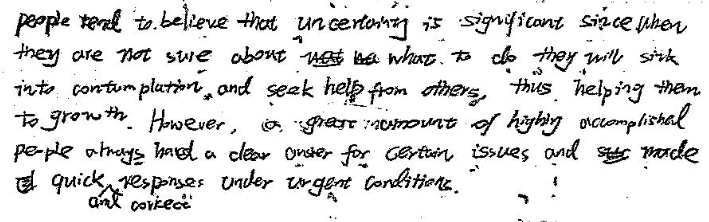 people tend to believe that uncertainty is significant since when
they are not sure about what to do they will sink
into contumplation, and seek help from others, thus helping them
to growth. However, a great amount of highly accomplished
people always had a clear onser for certain issues and made
quick and correct responses under urgent conditions.